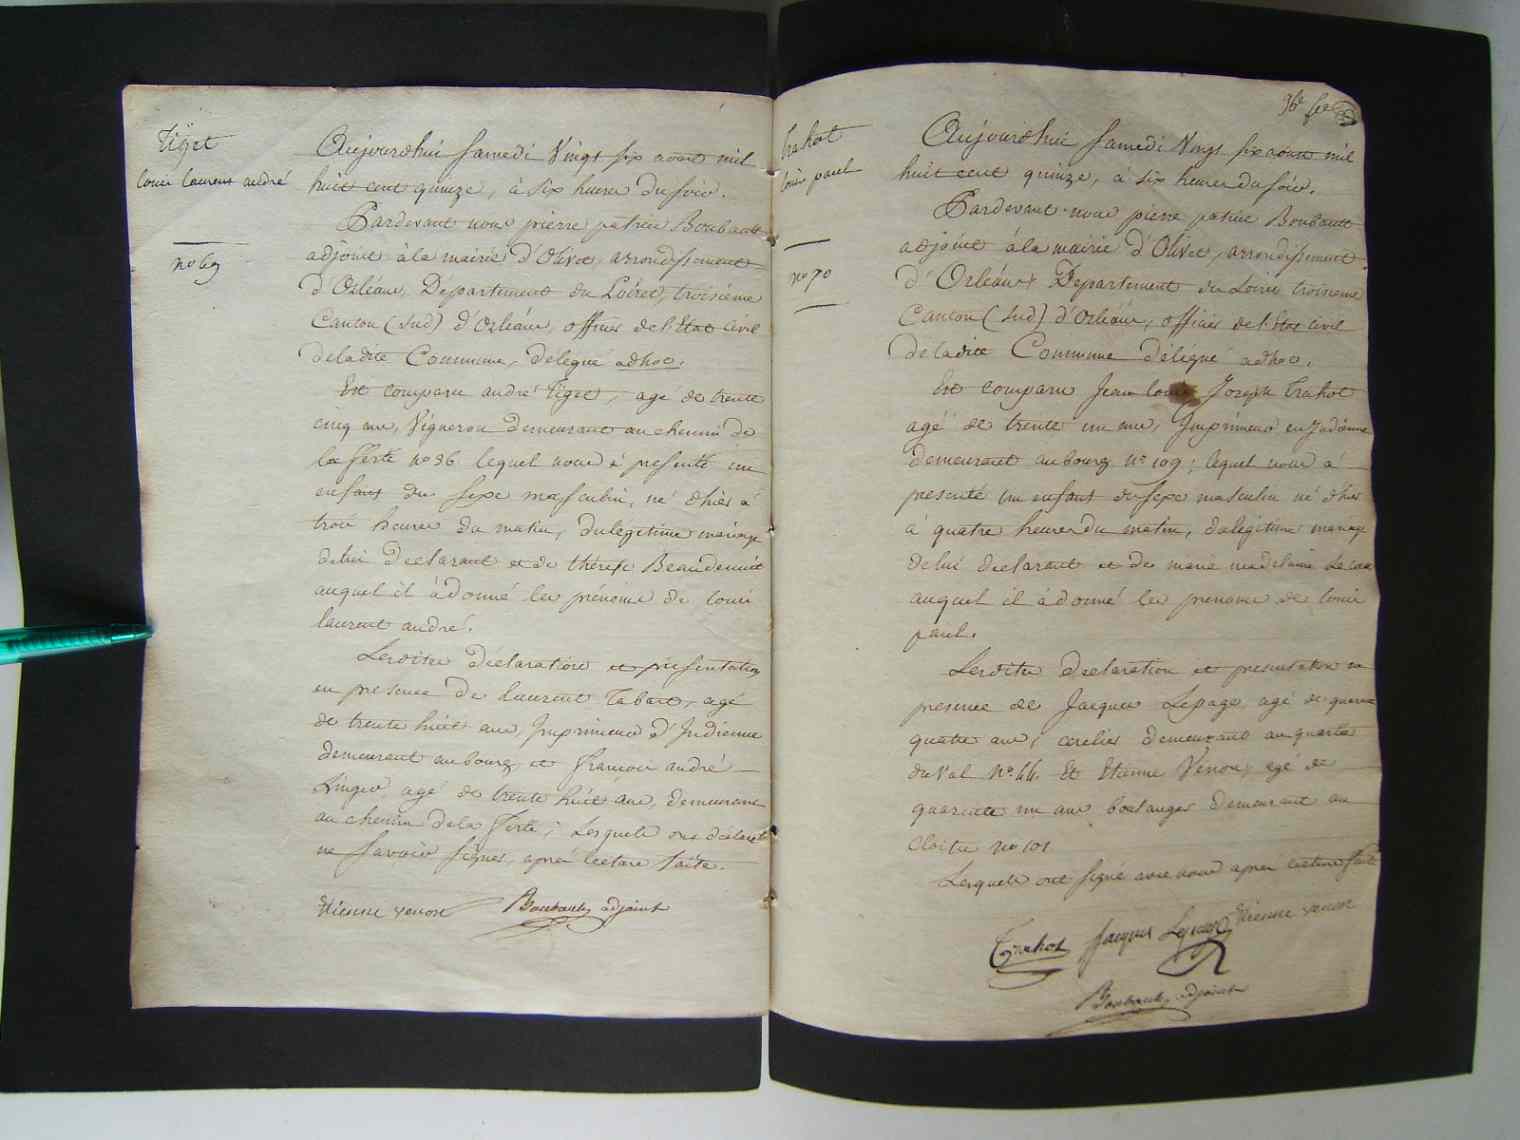 Tiget
louis laurent andré
no 69
Aujourdhui samedi Vingt six aout mil
huit cent quinze, à six heures du soir.
Pardevant nous pierre patrice Boubault
adjoint à la mairie d'Olivet, arrondissement
d'Orléans, Département du Loiret, troisieme
Canton (sud) d'Orléans, officier de l'Etat Civil
de la dite Commune, délégué adhoc.
Est comparu andré Tiget, agé de trente
cinq ans, Vigneron demeurant au chemin de
la ferté no 36 lequel nous à présenté un
enfant du sexe masculin, né d'hier à
trois heures du matin, du legitime mariage
de lui declarant et de thérèse Beaudenuit
auquel il à donné les prenoms de louis
laurent andré.
Lesdites déclaration et présentation
en presence de laurent Tabart, agé
de trente huit ans, Imprimeur d'Indienne
demeurant au bourg et francois andré
agé de trente huit ans, demeurant
au chemin de la ferté; Lesquels ont déclaré
ne savoir signer, après lecture faite.
Etienne venon Boubault adjoint
36e fe
trahot
louis paul
no 70
Aujourdhui samedi Vingt six aout mil
huit cent quinze, à six heures du soir.
Pardevant nous pierre patrice Boubault
adjoint à la mairie d'Olivet, arrondissement
d'Orléans, Département du Loiret troisieme
Canton (sud) d'Orléans, officier de l'Etat Civil
de la dite Commune délégué adhoc.
Est comparu Jean louis Joseph trahot
agé de trente un ans, Imprimeur en Indienne
demeurant au bourg no 109; lequel nous à
presenté un enfant du sexe masculin né d'hier
à quatre heures du matin, du légitime mariage
de lui declarant et de marie madelaine
auquel il à donné les prenoms de louis
paul.
Lesdites declaration et presentation en
presence de Jacques Lepage, agé de quarante
quatre ans, cerclier demeurant au quartier
du Val No 44. Et Etienne Venon, agé de
quarante un ans boulanger demeurant au
Cloitre no 101
Lesquels ont signé avec nous après lecture faite
Trahot Jacques Lepage Etienne venon
Boubault adjoint